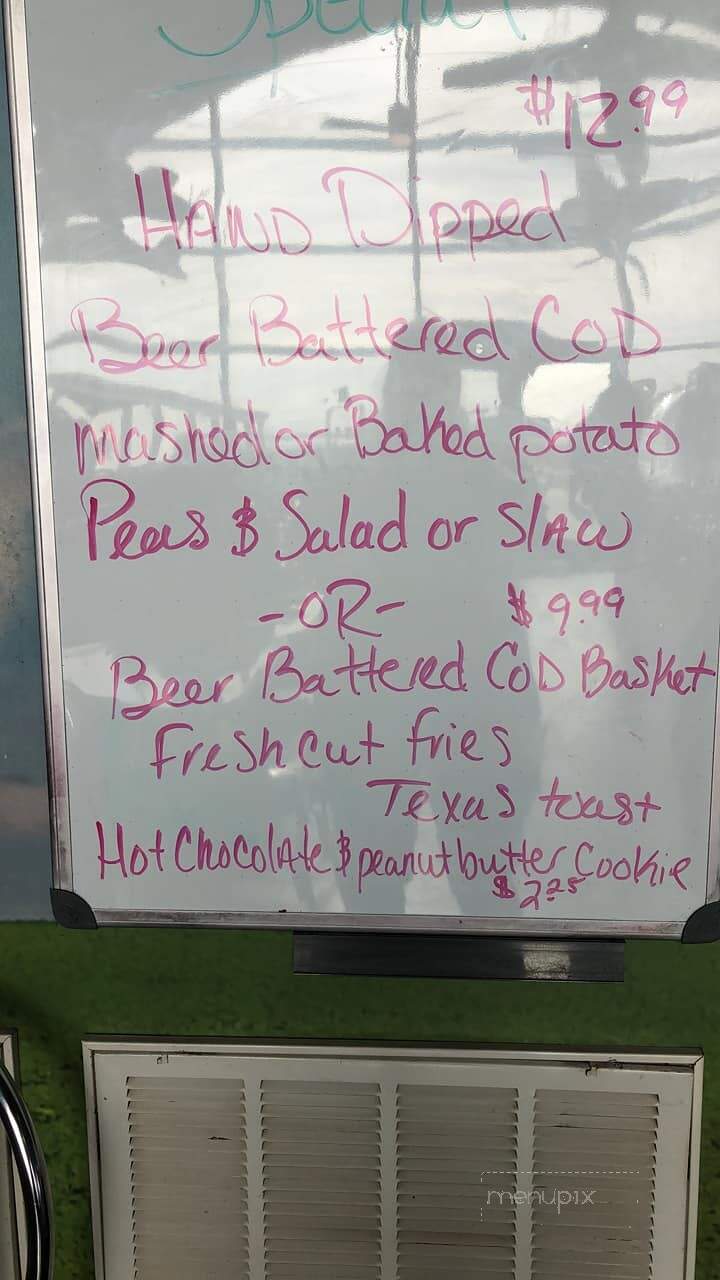 Special
$12.99
HAND Dipped
Beer Battered COD
mashed or Baked potato
Peas & Salad or SlAW
-OR- $9.99
Beer Battered COD Basket
Fresh cut fries
Texas toast
Hot ChocolAte & peanut butter Cookie
$2.25
menupix